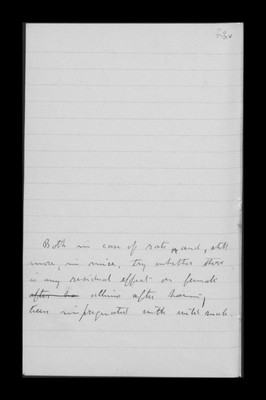 Both in case of rats, and, still
more, in mice, try whether there
is any residual effect on female
after having
been impregnated with wild male.